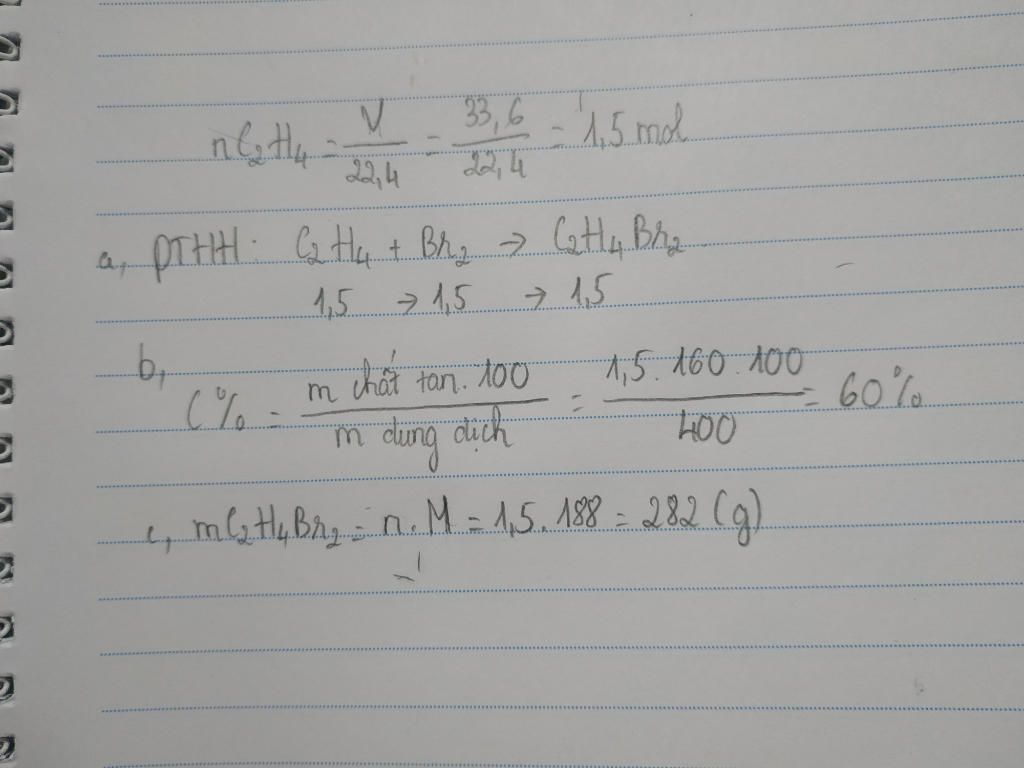 nC₂H₄ = V/22,4 = 33,6/22,4 = 1,5 mol
a, PTHH: C₂H₄ + Br₂ → C₂H₄Br₂
1,5 → 1,5 → 1,5
b, C% = m chất tan . 100 / m dung dịch = 1,5 . 160 . 100 / 400 = 60%
c, mC₂H₄Br₂ = n . M = 1,5 . 188 = 282 (g)